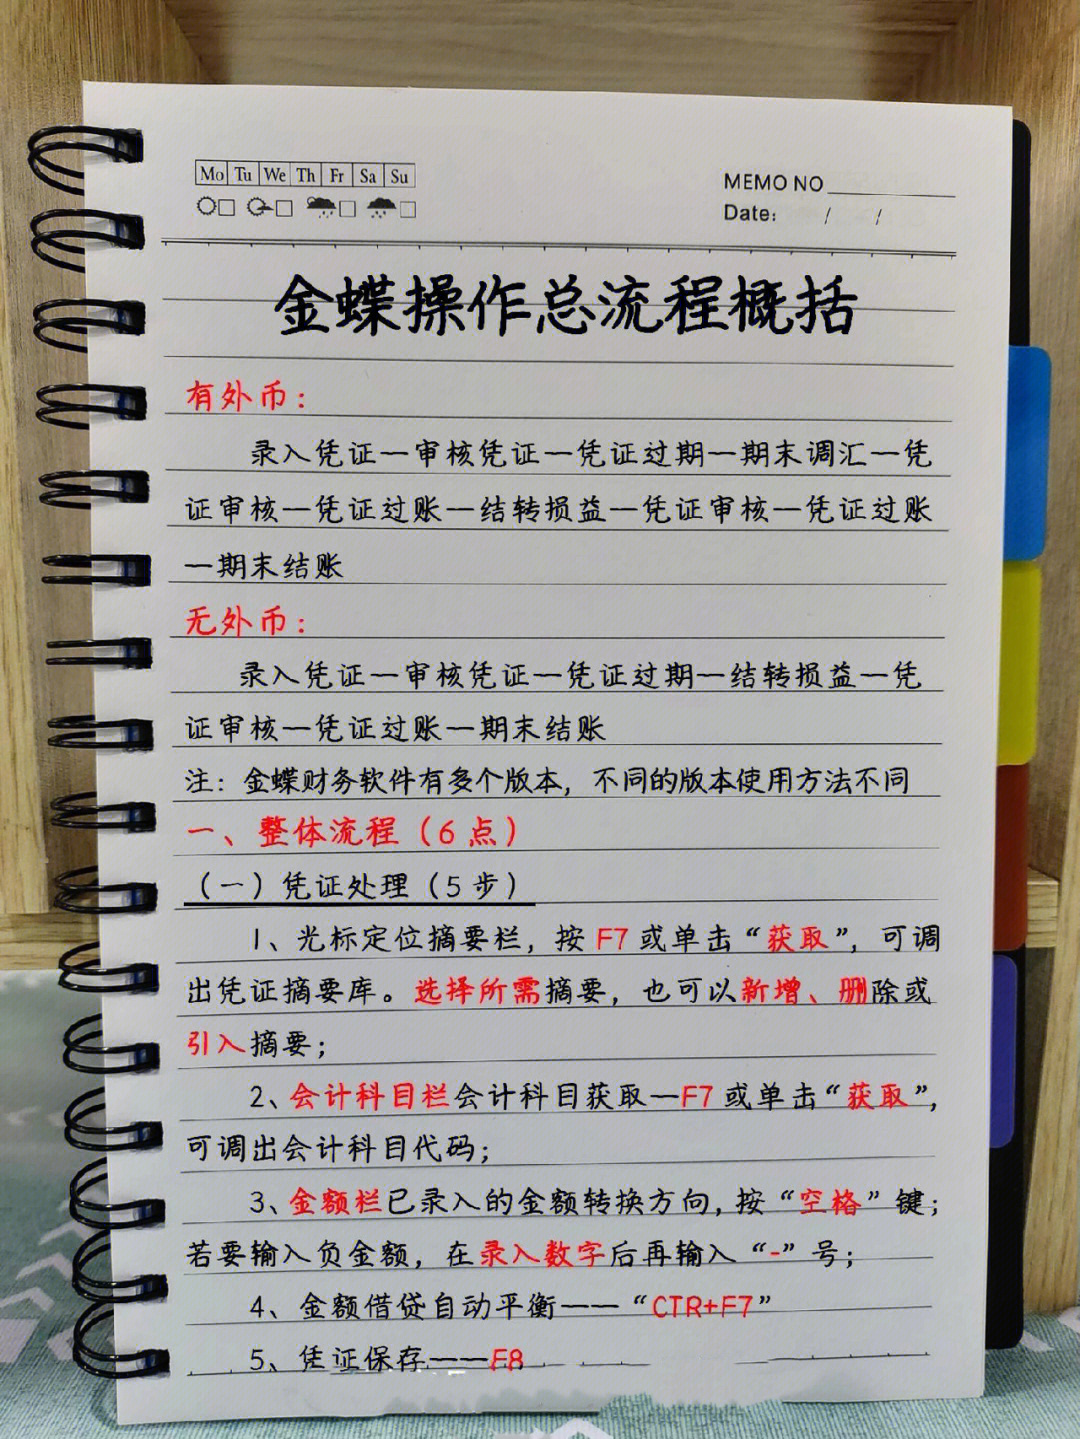 Mo Tu We Th Fr Sa Su
MEMO NO
Date: / /
金蝶操作总流程概括
有外币：
录入凭证一审核凭证一凭证过期一期末调汇一凭
证审核一凭证过账一结转损益一凭证审核一凭证过账
一期末结账
无外币：
录入凭证一审核凭证一凭证过期一结转损益一凭
证审核一凭证过账一期末结账
注：金蝶财务软件有多个版本，不同的版本使用方法不同
一、整体流程（6点）
（一）凭证处理（5步）
1、光标定位摘要栏，按F7或单击“获取”，可调
出凭证摘要库。选择所需摘要，也可以新增、删除或
引入摘要；
2、会计科目栏会计科目获取一F7或单击“获取”，
可调出会计科目代码；
3、金额栏已录入的金额转换方向，按“空格”键；
若要输入负金额，在录入数字后再输入“-”号；
4、金额借贷自动平衡——“CTR+F7”
5、凭证保存——F8